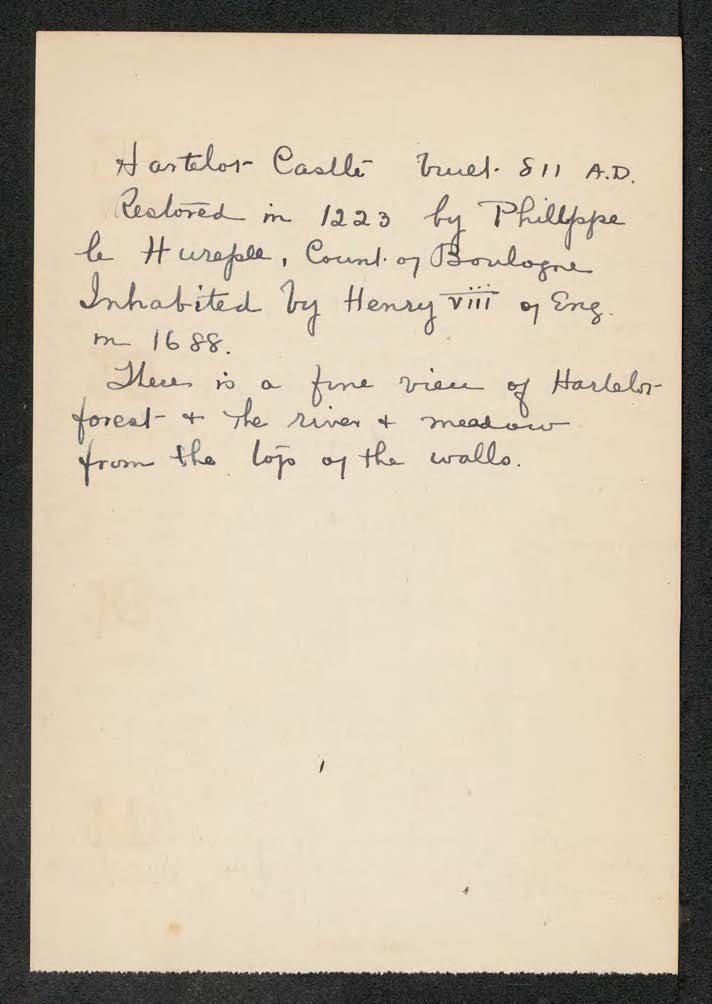 Hartelot Castle built 811 A.D.
Restored in 1223 by Phillppe
le Hureple, Count of Boulogne
Inhabited by Henry VIII of Eng.
in 1688.
There is a fine view of Hartelot
forest & the river & meadow
from the top of the walls.